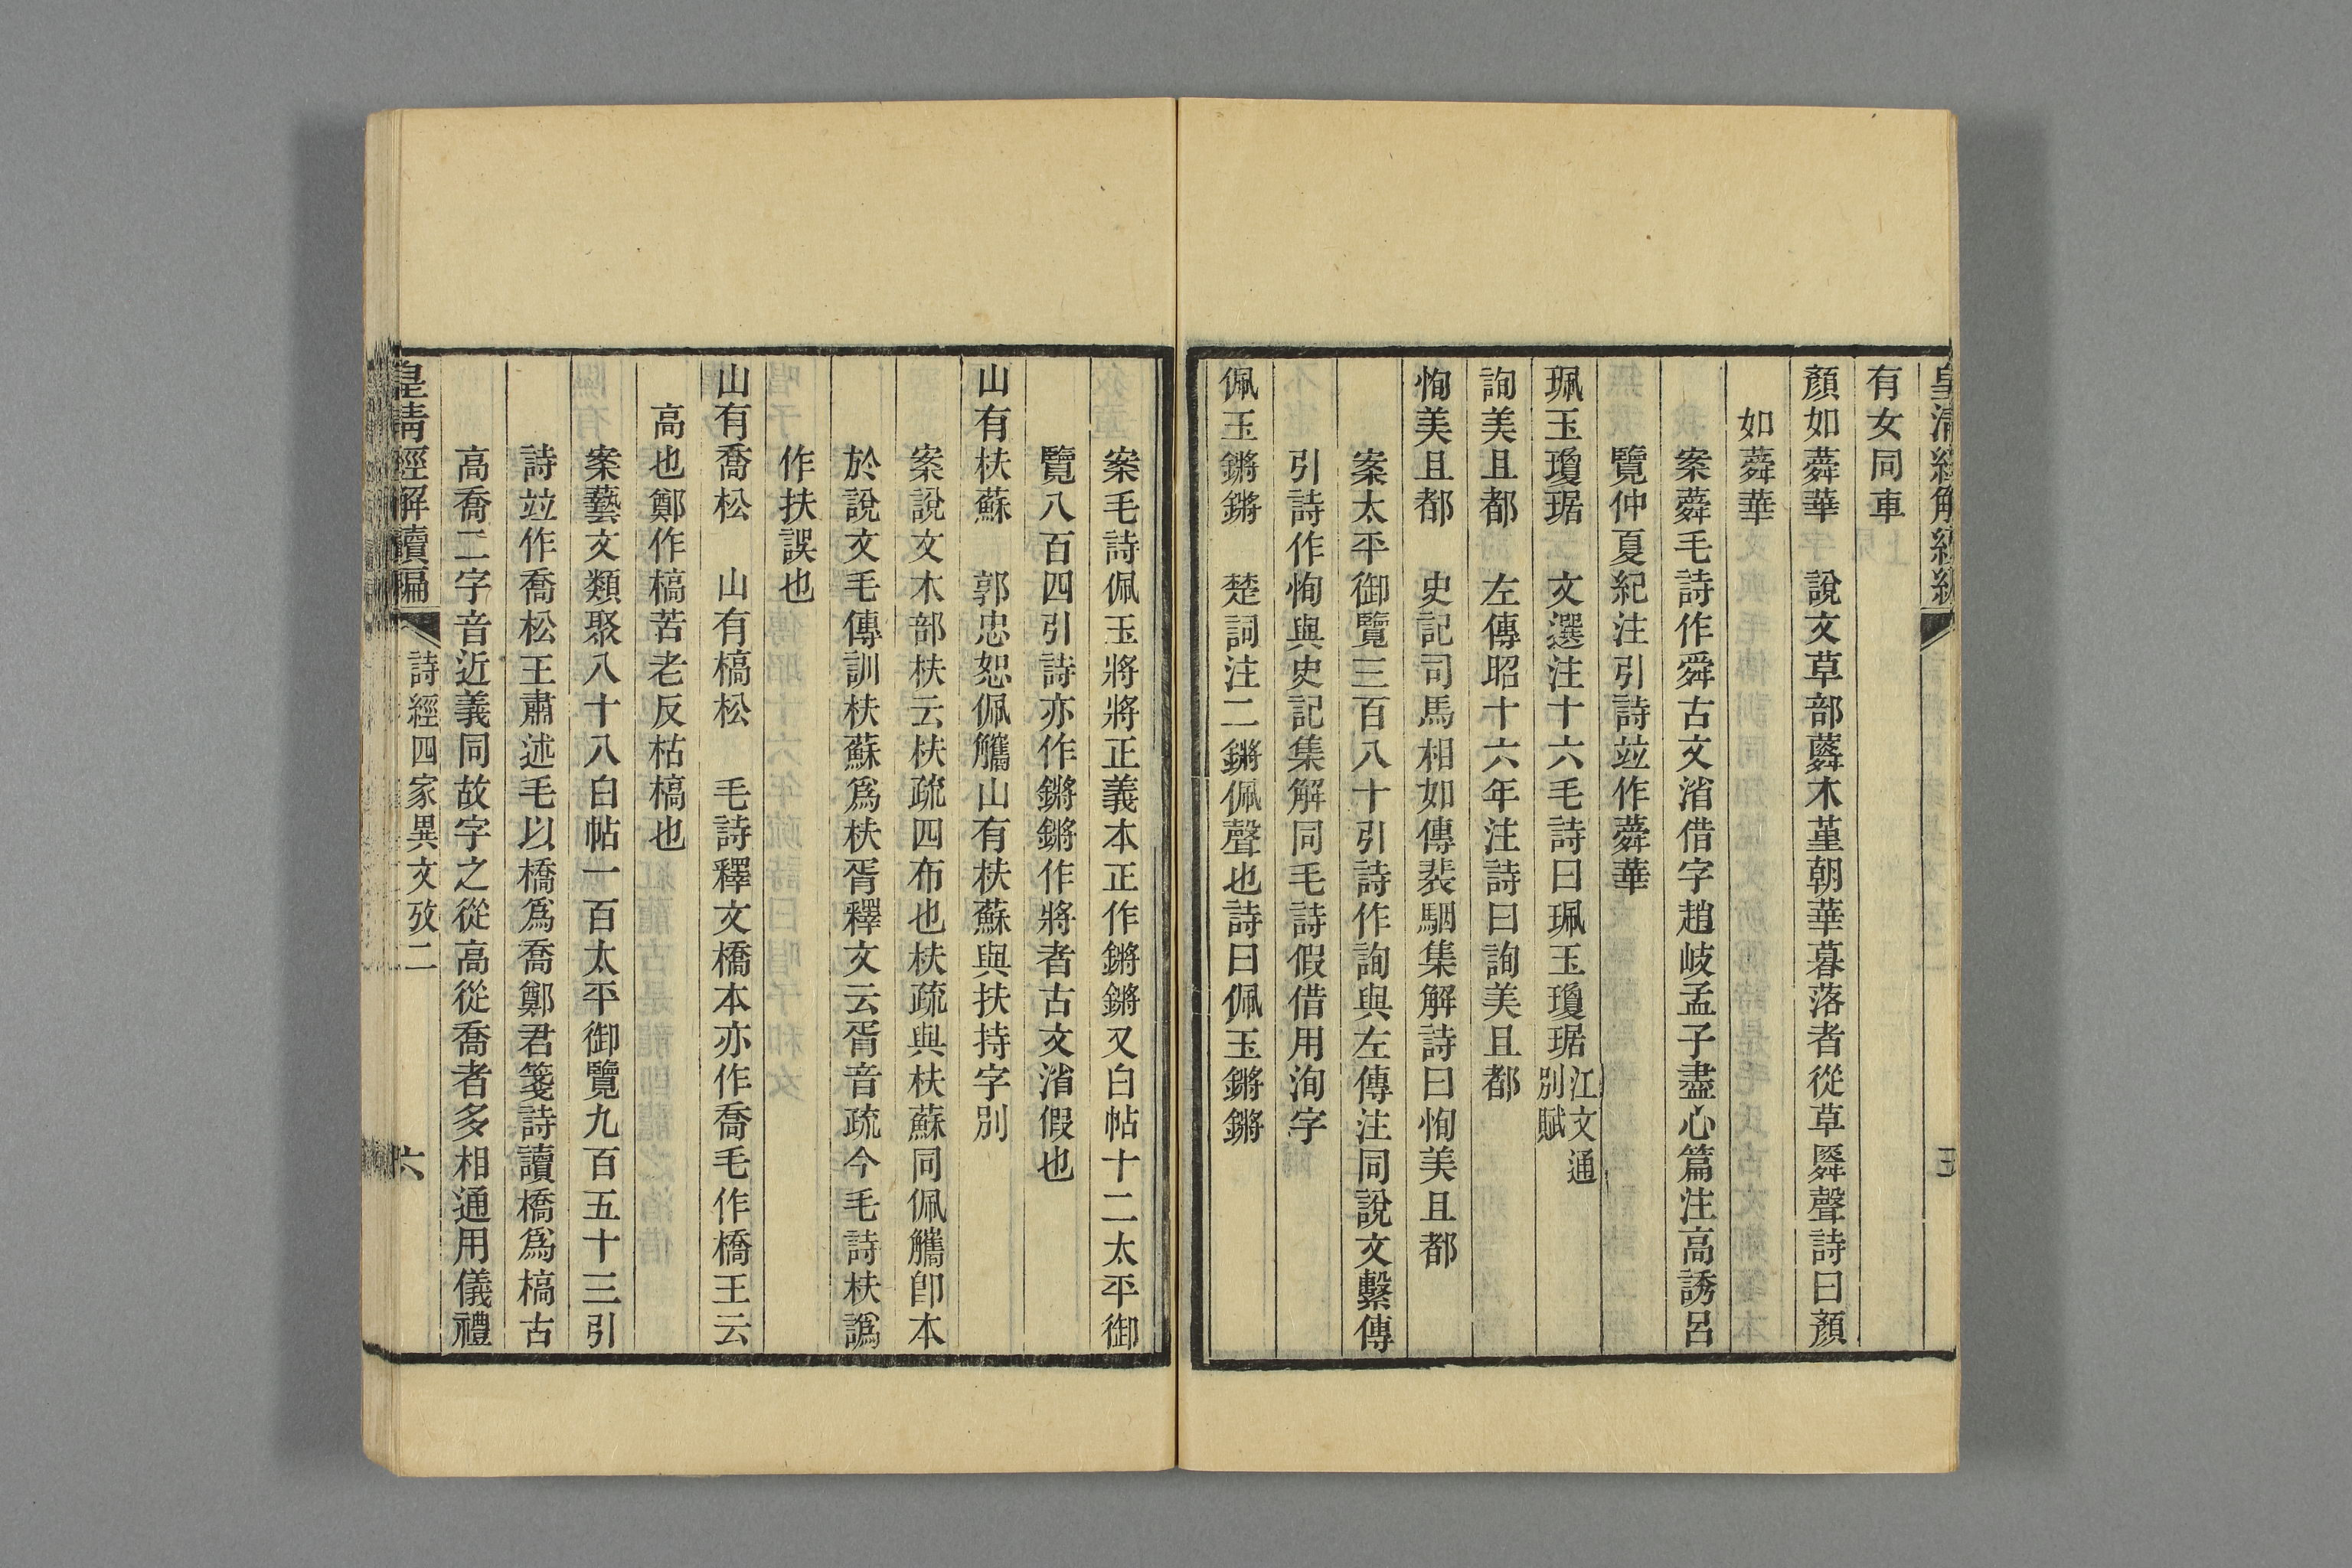 皇清經解續編
有女同車
顏如蕣華　說文草部蕣木堇朝華暮落者從草䑞聲詩曰顏
如蕣華
案蕣毛詩作舜古文渻借字趙岐孟子盡心篇注高誘呂
覽仲夏紀注引詩竝作蕣華
珮玉瓊琚　文選注十六毛詩曰珮玉瓊琚江文通別賦
詢美且都　左傳昭十六年注詩曰詢美且都
恂美且都　史記司馬相如傳裴駰集解詩曰恂美且都
案太平御覽三百八十引詩作詢與左傳注同說文繫傳
引詩作恂與史記集解同毛詩假借用洵字
佩玉鏘鏘　楚詞注二鏘佩聲也詩曰佩玉鏘鏘
案毛詩佩玉將將正義本正作鏘鏘又白帖十二太平御
覽八百四引詩亦作鏘鏘作將者古文渻假也
山有枎蘇　郭忠恕佩觿山有枎蘇與扶持字別
案說文木部枎云枎疏四布也枎疏與枎蘇同佩觿卽本
於說文毛傳訓枎蘇爲枎胥釋文云胥音疏今毛詩枎譌
作扶誤也
山有喬松　山有槁松　毛詩釋文橋本亦作喬毛作橋王云
高也鄭作槁苦老反枯槁也
案藝文類聚八十八白帖一百太平御覽九百五十三引
詩竝作喬松王肅述毛以橋爲喬鄭君箋詩讀橋爲槁古
高喬二字音近義同故字之從高從喬者多相通用儀禮
皇清經解續編　詩經四家異文攷二　六